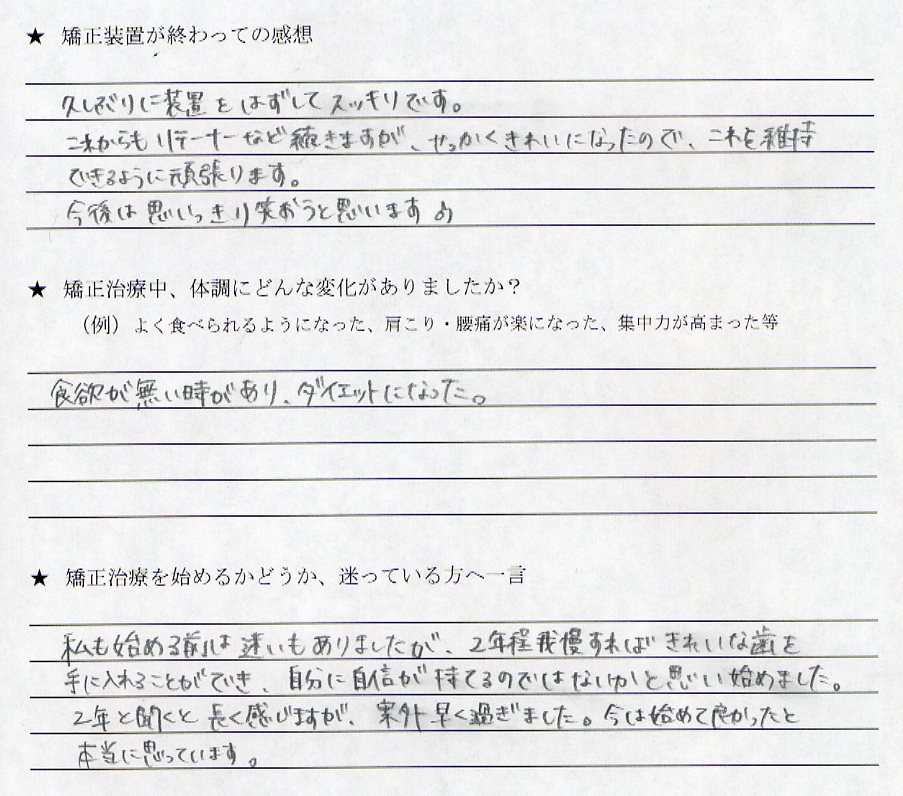 ★ 矯正装置が終わっての感想
久しぶりに装置をはずしてスッキリです。
これからもリテーナーなど続きますが、せっかくきれいになったので、これを維持
できるように頑張ります。
今後は思いっきり笑おうと思います♪
★ 矯正治療中、体調にどんな変化がありましたか？
（例）よく食べられるようになった、肩こり・腰痛が楽になった、集中力が高まった等
食欲が無い時があり、ダイエットになった。
★ 矯正治療を始めるかどうか、迷っている方へ一言
私も始める前は迷いもありましたが、2年程我慢すればきれいな歯を
手に入れることができ、自分に自信が持てるのではないかと思い始めました。
2年と聞くと長く感じますが、案外早く過ぎました。今は始めて良かったと
本当に思っています。